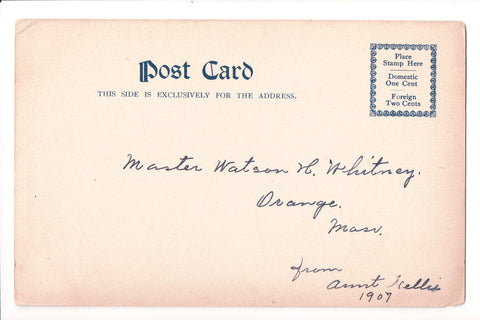 Post Card
THIS SIDE IS EXCLUSIVELY FOR THE ADDRESS.
Place
Stamp Here
Domestic
One Cent
Foreign
Two Cents
Master Watson H. Whitney.
Orange.
Mass.
from
Aunt Nellie
1907